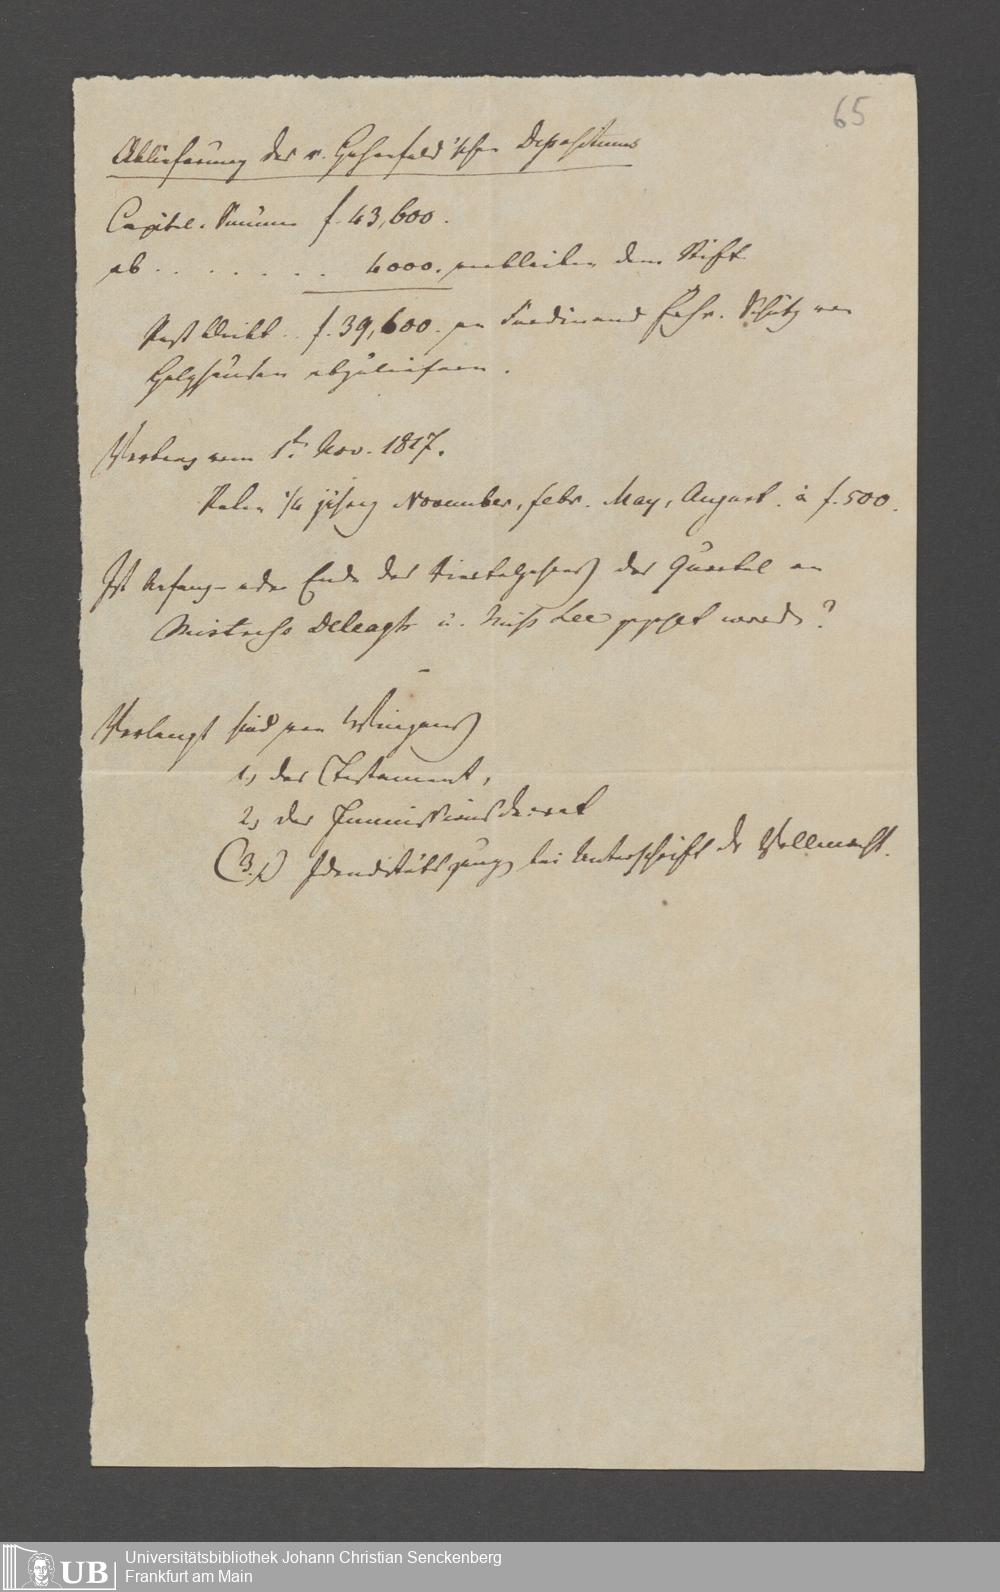 65
Ablieferung des v. 'schen Depositums
Capital-Summe f. 43,600.
ab . . . . . . . . 4000. verbleiben dem Stift
Rest bleibt .. f. 39,600. an Ferdinand Frhr. Schütz von
Holzhausen abzuliefern.
Vertrag vom 1t. Nov. 1817.
Raten 1/4 jährig November, Febr. May, August. à f. 500.
Ist Anfang oder Ende des Vierteljahres das Quartal an
Mistress u. Miss Lee gezahlt worden?
Verlangt sind von
1, das Testament,
2, das Immissionsdecret
(3.) Identitätszeugn bei Unterschrift der Vollmacht.
UB
Universitätsbibliothek Johann Christian Senckenberg
Frankfurt am Main